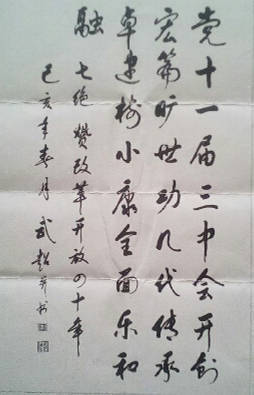 党十一届三中会开创
宏篇旷世功几代传承
卓建树小康全面乐和
融
七绝 赞改革开放四十年
己亥年春月 武